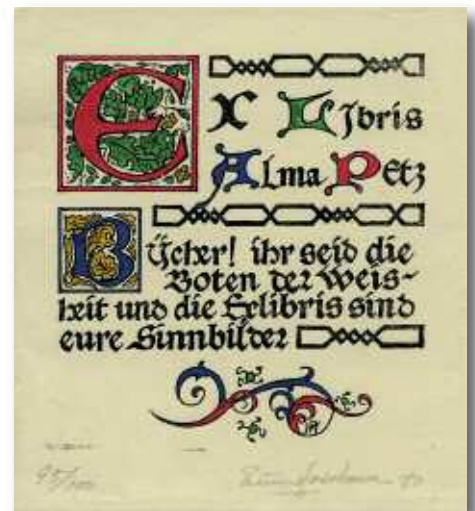 Ex Libris
Alma Petz
Bücher! ihr seid die
Boten der Weis-
heit und die Exlibris sind
eure Sinnbilder
95/100